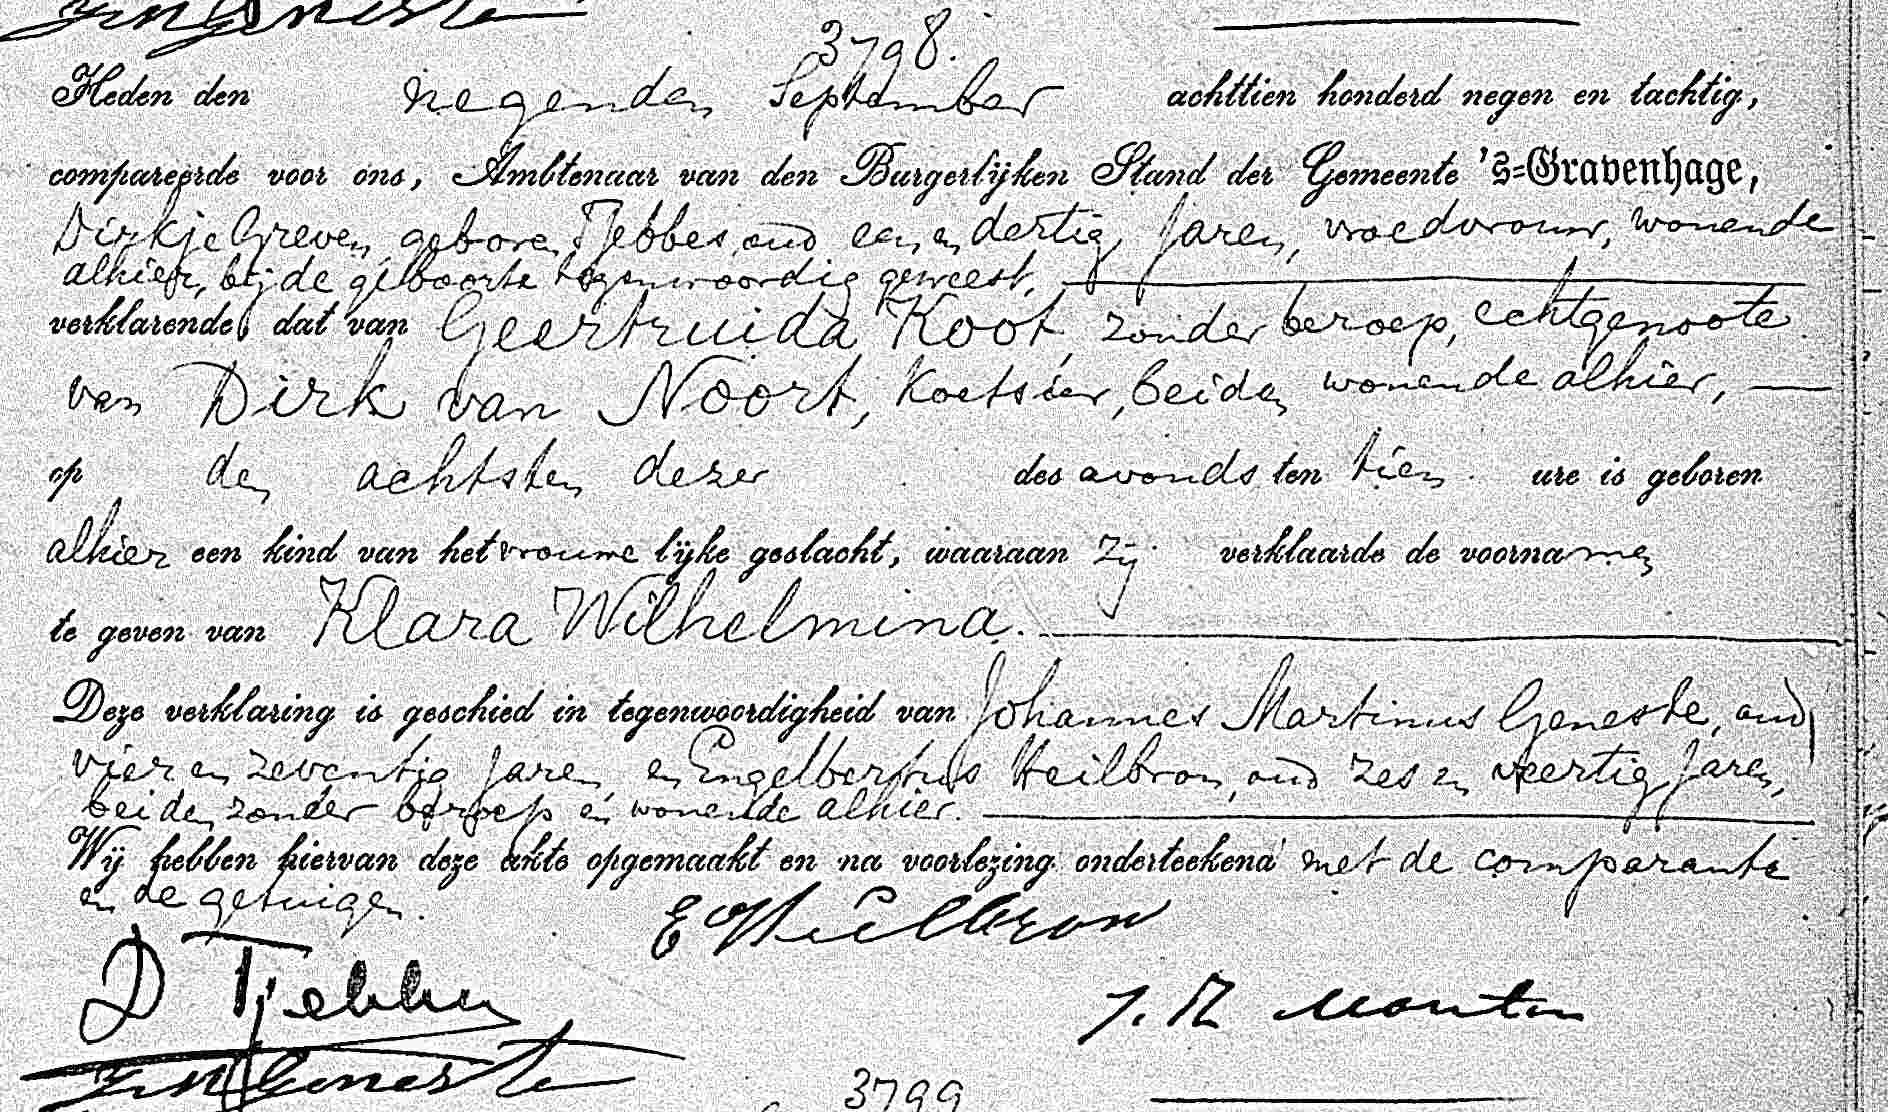 3798.
Heden den negenden September achttien honderd negen en tachtig,
compareerde voor ons, Ambtenaar van den Burgerlijken Stand der Gemeente 's-Gravenhage,
Dirkje Greven, geboren Tjebbes, oud een en dertig Jaren, vroedvrouw, wonende
alhier, bij de geboorte tegenwoordig geweest,
verklarende, dat van Geertruida Koot, zonder beroep, echtgenoote
van Dirk van Noort, Koetsier, beiden wonende alhier,
op den achtsten dezer des avonds ten tien ure is geboren
alhier een kind van het vrouwelijke geslacht, waaraan zij verklaarde de voornamen
te geven van Klara Wilhelmina.
Deze verklaring is geschied in tegenwoordigheid van Johannes Martinus Geneste, oud
vier en zeventig Jaren, en Engelbertus Heilbron, oud zes en veertig Jaren,
beiden zonder beroep en wonende alhier.
Wij hebben hiervan deze akte opgemaakt en na voorlezing onderteekend met de comparante
en de getuigen.
E Heilbron
D Tjebbes
J. M Geneste
3799